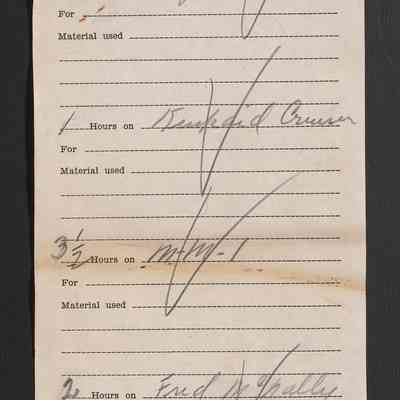 For
Material used
1 Hours on Kinkaid Cruiser
For
Material used
3 1/2 Hours on M-M-1
For
Material used
2 Hours on Fred McNally